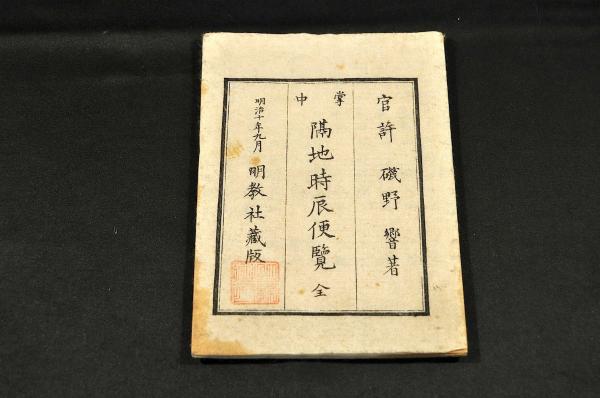 官許 磯野 響著
掌中
隔地時辰便覽 全
明治十年九月 明教社藏版